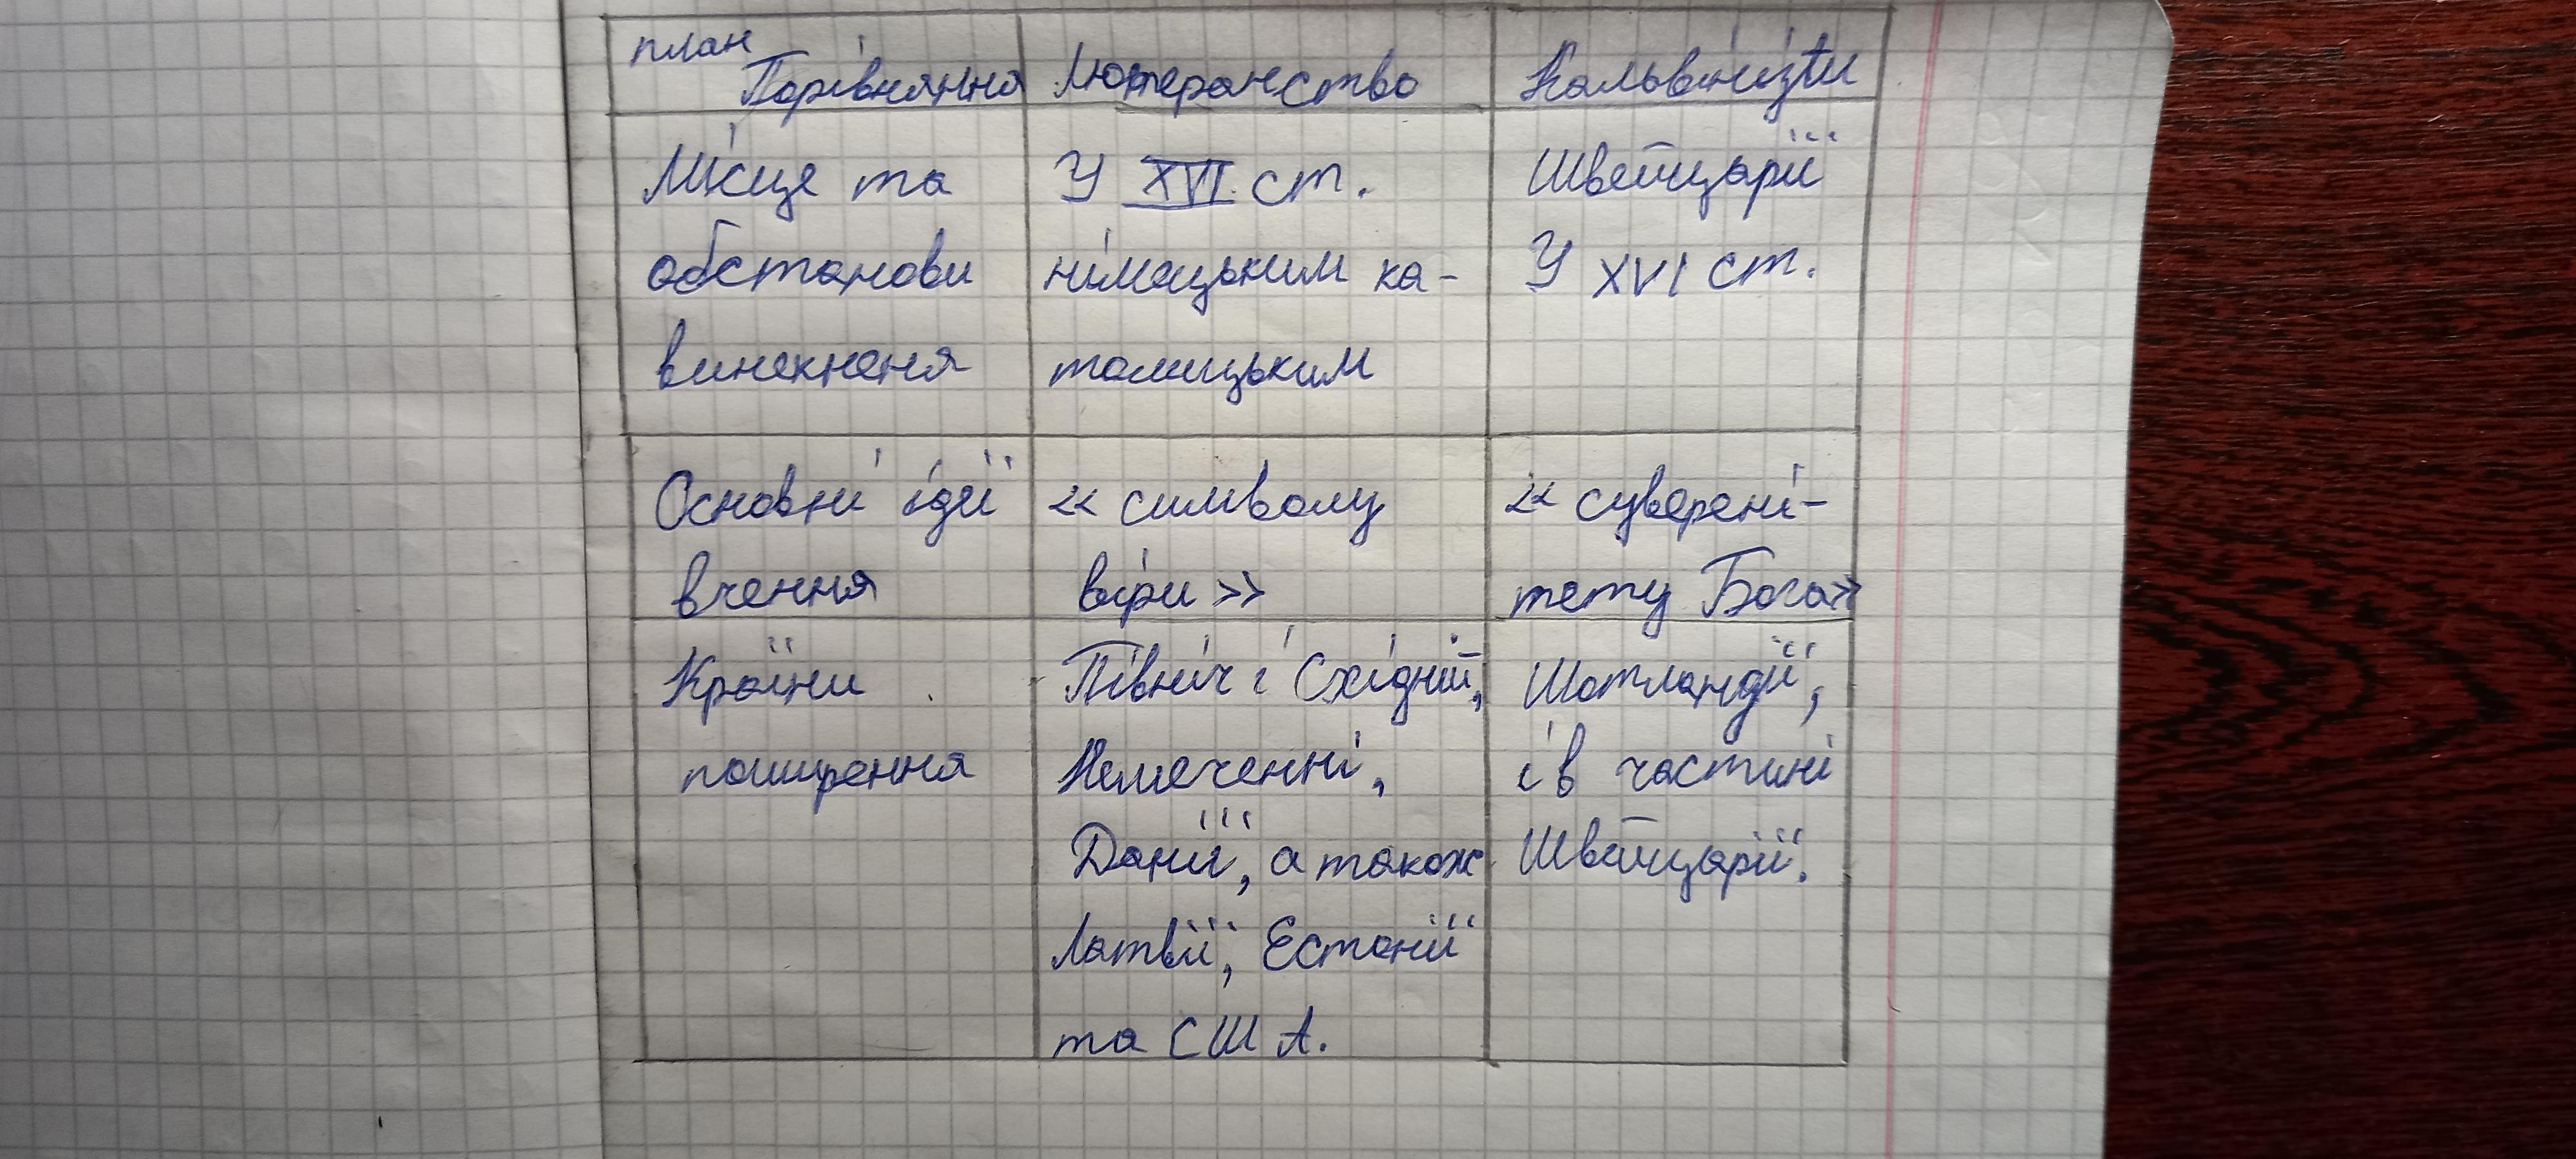 план
Порівняння
Лютеранство
Кальвінізти
Місце та
обстанови
винекненя
У XVI ст.
німецьким ка-
толицьким
Швейцарії
У XVI ст.
Основні ідеї
вчення
« символу
віри »
« суверені-
тету Бога»
Країни
поширення
Північ і Східній,
Немеченні,
Данії, а також
Латвії, Естонії
та США.
Шотландії,
і в частині
Швейцарії.